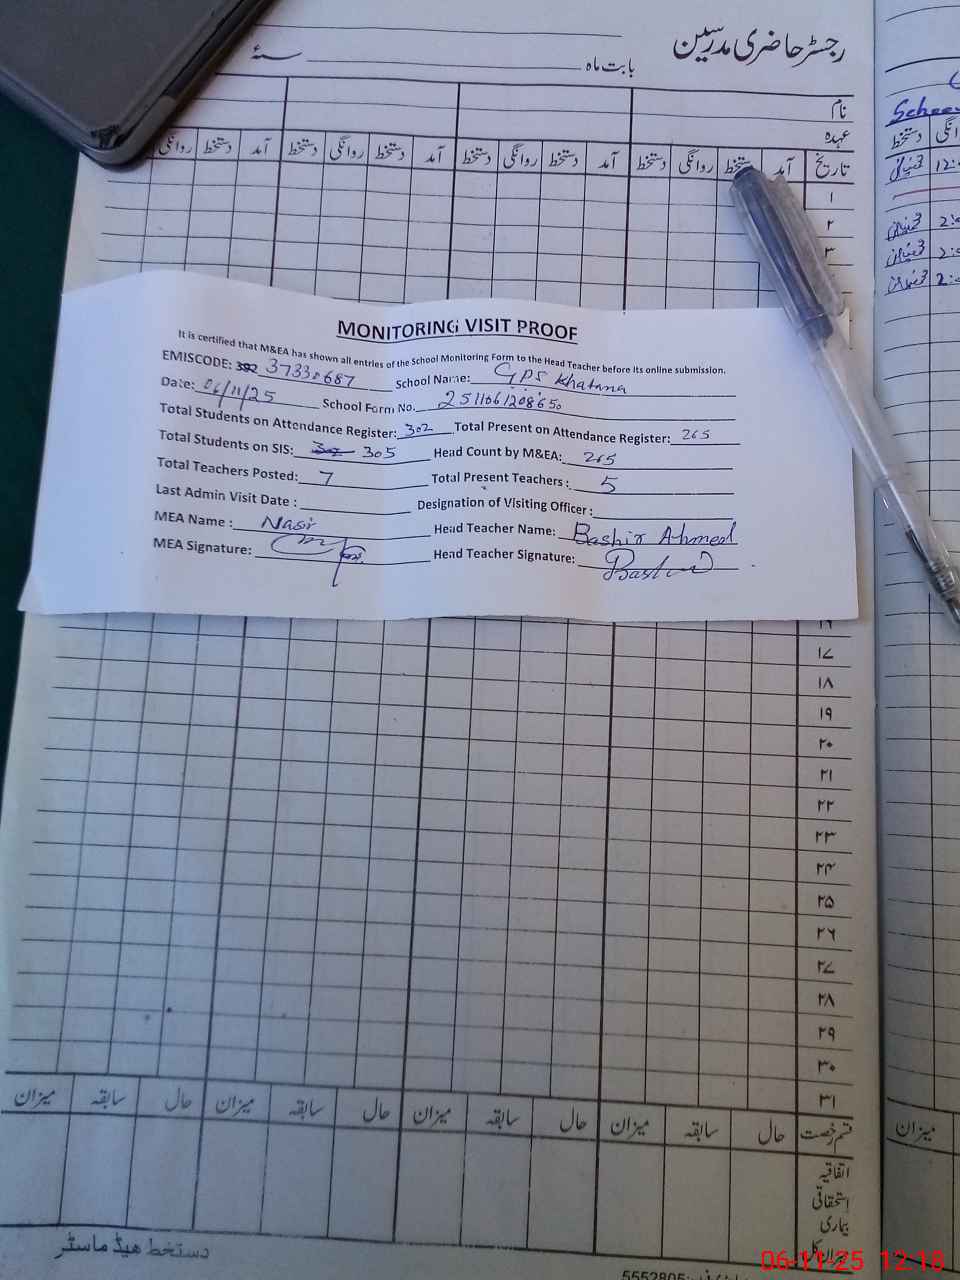 رجسٹر حاضری مدرسین
بابت ماہ سنۂ
نام
عہدہ
تاریخ آمد دستخط روانگی دستخط آمد دستخط روانگی دستخط آمد دستخط روانگی دستخط آمد دستخط روانگی
۱
۲
۳
MONITORING VISIT PROOF
It is certified that M&EA has shown all entries of the School Monitoring Form to the Head Teacher before its online submission.
EMISCODE: 302 37330687 School Name: GPS Khatana
Date: 06/11/25 School Form No. 2511061208650
Total Students on Attendance Register: 302 Total Present on Attendance Register: 265
Total Students on SIS: 302 305 Head Count by M&EA: 265
Total Teachers Posted: 7 Total Present Teachers: 5
Last Admin Visit Date : Designation of Visiting Officer :
MEA Name : Nasir Head Teacher Name: Bashir Ahmed
MEA Signature: Head Teacher Signature: Bashir
۱۷
۱۸
۱۹
۲۰
۲۱
۲۲
۲۳
۲۴
۲۵
۲۶
۲۷
۲۸
۲۹
۳۰
۳۱
قسم رخصت حال سابقہ میزان حال سابقہ میزان حال سابقہ میزان حال سابقہ میزان
اتفاقیہ
استحقاقی
بیماری
میزان کل
دستخط ہیڈ ماسٹر
دستخط
12:
2:0
2:0
2:0
میزان
5552805
06-11-25 12:18